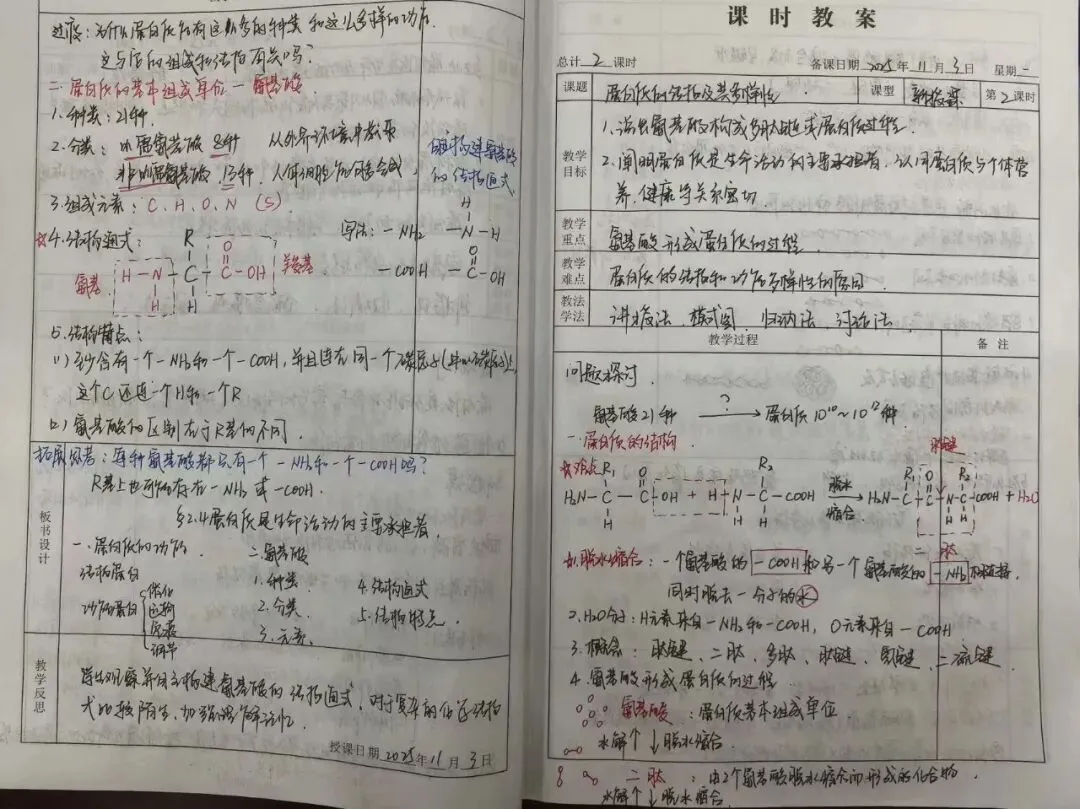 过渡：为什么蛋白质有这么多的种类和这么多样的功能
这与它的组成和结构有关吗？
二、蛋白质的基本组成单位—氨基酸
1.种类：21种.
2.分类：必需氨基酸 8种 从外界环境中获取
非必需氨基酸 13种，人体细胞能合成
自主构建氨基酸
的结构通式
3.组成元素：C、H、O、N (S)
☆4.结构通式：
氨基
R
O
H－N－C－C－OH
H H
羧基
写法：－NH2
H
－N－H
－COOH
O
－C－OH
5.结构特点：
(1)至少含有一个－NH2和一个－COOH，并且连在同一个碳原子(中心碳原子)上
这个C还连一个H和一个R
(2)氨基酸的区别在于R基的不同.
拓展思考：每种氨基酸都只有一个－NH2和一个－COOH吗？
R基上也可能存在－NH2或－COOH.
板书设计
§2.4蛋白质是生命活动的主要承担者
一.蛋白质的功能
结构蛋白
功能蛋白
催化
运输
免疫
调节
二.氨基酸
1.种类
2.分类
3.元素
4.结构通式
5.结构特点
教学反思
学生观察并自主构建氨基酸的结构通式，对于复杂的化学结构
式比较陌生，加强理解记忆
授课日期 2025年11月3日
课时教案
总计 2 课时
备课日期 2025年11月3日 星期一
课题 蛋白质的结构及其多样性 课型 新授课 第2课时
教学目标
1.说出氨基酸构成多肽链或蛋白质过程.
2.阐明蛋白质是生命活动的主要承担者，认同蛋白质与个体营
养、健康等关系密切
教学重点 氨基酸形成蛋白质的过程
教学难点 蛋白质的结构和功能多样性的原因
教法学法 讲授法、模式图、归纳法、讨论法
教学过程 备注
问题探讨
氨基酸21种 ？→ 蛋白质 10¹⁰~10¹²种
一.蛋白质的结构
☆难点
肽键
R1 O R2 R1 O R2
H2N－C－C－OH + H－N－C－COOH 脱水缩合→ H2N－C－C－N－C－COOH + H2O
H H H H H H
二肽
1.脱水缩合：一个氨基酸的－COOH和另一个氨基酸的－NH2相连接，
同时脱去一分子的水
2.H2O分子：H元素来自－NH2和－COOH，O元素来自－COOH
3.概念：肽键、二肽、多肽、肽链、氢键、二硫键
4.氨基酸形成蛋白质的过程
氨基酸：蛋白质基本组成单位
水解↑↓脱水缩合
二肽：由2个氨基酸脱水缩合而形成的化合物.
水解↑↓脱水缩合